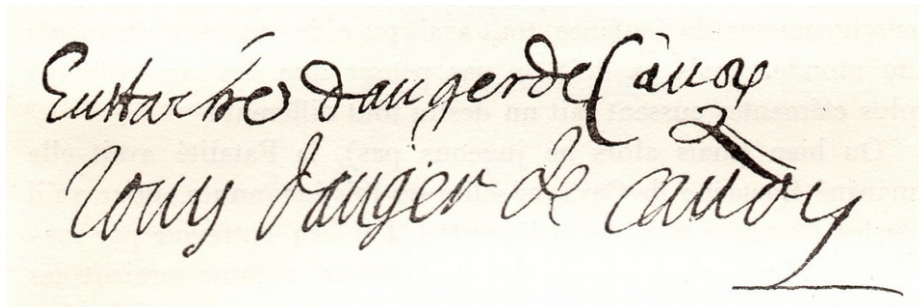 Eustache dauger de Cauoy
Louys dauger de Cauoy